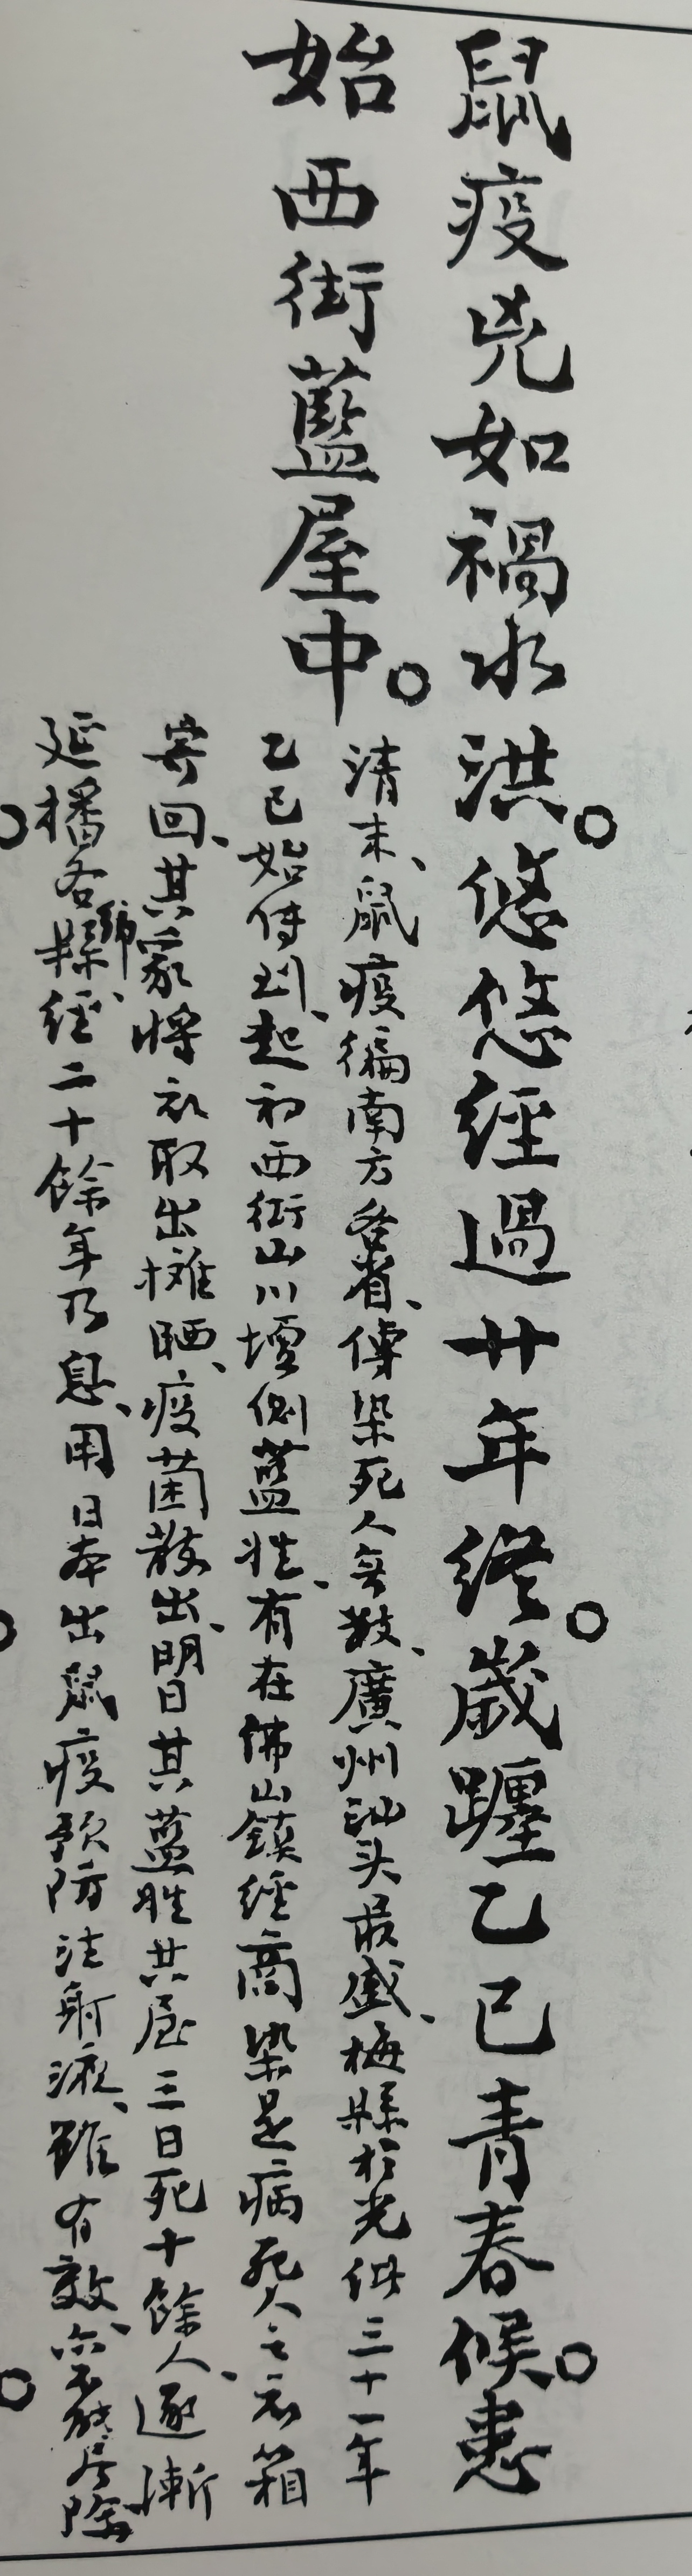 鼠疫兇如禍水洪。悠悠經過廿年終。歲躔乙巳青春候。患
始西街藍屋中。
清末、鼠疫徧南方各省、傳染死人無数、廣州汕头最盛、梅縣於光緒三十一年
乙巳始傳到、起初西街山川壇側藍姓、有在佛山鎮經商染是病死人之衣箱
寄回、其家將衣取出攤晒、疫菌散出、明日其藍姓共屋三日死十餘人、逐漸
延播各縣鄉、經二十餘年乃息、用日本出鼠疫預防注射液、雖有效、亦不能尽除